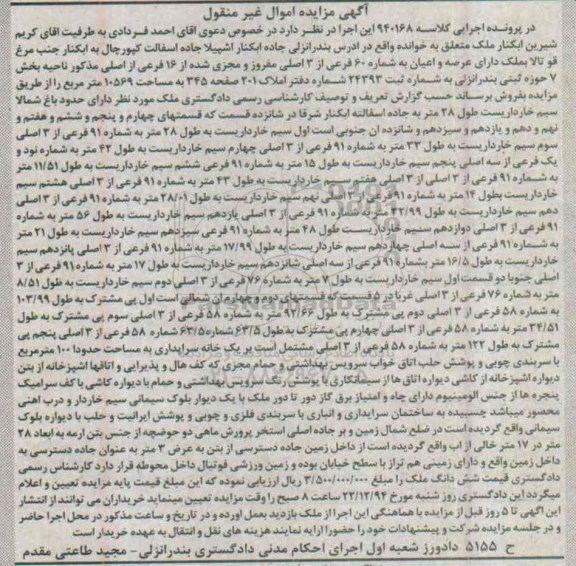 آگهی مزایده اموال غیر منقول
در پرونده اجرایی کلاسه ۹۴۰۱۶۸ این اجرا در نظر دارد در خصوص دعوی اقای احمد فردادی به طرفیت اقای کریم
شیرین ابکنار ملک متعلق به خوانده واقع در ادرس بندرانزلی جاده ابکنار اشپیلا جاده اسفالت کپورچال به ابکنار جنب مرغ
قو تالا بملک دارای عرصه و اعیان به شماره ۶۰ فرعی از ۳ اصلی مفروز و مجزی شده از ۱۶ فرعی از اصلی مذکور ناحیه بخش
۷ حوزه ثبتی بندرانزلی به شماره ثبت ۲۴۳۹۳ شماره دفتر املاک ۲۰۱ صفحه ۳۴۵ به مساحت ۱۰۵۶۹ متر مربع را از طریق
مزایده بفروش برساند حسب گزارش تعریف و توصیف کارشناسی رسمی دادگستری ملک مورد نظر دارای حدود باغ شمالا
سیم خارداریست طول ۲۸ متر به جاده اسفالته ابکنار شرقا در شانزده قسمت که قسمتهای چهارم و پنجم و ششم و هفتم و
نهم و دهم و یازدهم و سیزدهم و شانزده ان جنوبی است اول سیم خارداریست به طول ۲۸ متر به شماره ۹۱ فرعی از ۳ اصلی
سوم سیم خارداریست به طول ۳۳ متر به شماره ۹۱ فرعی از ۳ اصلی چهارم سیم خارداریست به طول ۴۲ متر به شماره نود و
یک فرعی از سه اصلی پنجم سیم خارداریست به طول ۱۵ متر به شماره ۹۱ فرعی ششم سیم خارداریست به طول ۱۱/۵۱ متر
به شماره ۹۱ فرعی از ۳ اصلی از ۳ اصلی هفتم سیم خارداریست به طول ۴۳ متر به شماره ۹۱ فرعی از ۳ اصلی هشتم سیم
خارداریست بطول ۱۴ متر به شماره ۹۱ فرعی از ۳ اصلی نهم سیم خاریست به طول ۲۸/۰۱ متر به شماره ۹۱ فرعی از ۳ اصلی
دهم سیم خارداریست به طول ۴۲/۹۹ متر به شماره ۹۱ فرعی از ۳ اصلی یازدهم سیم خارداریست به طول ۵۶ متر به شماره
۹۱ فرعی از ۳ اصلی دوازدهم سیم خارداریست طول ۴۸ متر به شماره ۹۱ فرعی سیزدهم سیم خارداریست به طول ۲۱ متر
به شماره ۹۱ فرعی از سه اصلی چهاردهم سیم خارداریست به طول ۱۷/۹۹ متر به شماره ۹۱ فرعی از ۳ اصلی پانزدهم سیم
خارداریست به طول ۱۶/۵ متر بشماره ۹۱ فرعی از سه اصلی شانزدهم سیم خارداریست به طول ۱۷ متر به شماره ۹۱ فرعی از ۳
اصلی جنوبا دو قسمت اول سیم خارداریست به طول ۷ متر به شماره ۷۶ فرعی از ۳ اصلی دوم سیم خاریست به طول ۸/۵۱
متر به شماره ۷۶ فرعی از ۳ اصلی غربا در قسمت که قسمتهای دوم و چهارم ان شمالی است اول پی مشترک به طول ۱۰۳/۹۹
به شماره ۵۸ فرعی از ۳ اصلی دوم پی مشترک به طول ۹۲/۶۶ متر به شماره ۵۸ فرعی از ۳ اصلی سوم پی مشترک به طول
۳۴/۵۱ متر به شماره ۵۸ فرعی از ۳ اصلی چهارم پی مشترک به طول ۶۳/۵ شماره ۶۳/۵ شماره ۵۸ فرعی از ۳ اصلی پنجم پی
مشترک به طول ۱۲۲ متر به شماره ۵۸ فرعی از ۳ اصلی مشتمل است بر یک خانه سرایداری به مساحت حدودا ۱۰۰ مترمربع
با سربندی چوبی و پوشش حلب اتاق خواب سرویس بهداشتی و حمام مجزی که کف هال و پذیرایی و اتاقها اشپزخانه از بتن
دیواره اشپزخانه از کاشی دیواره اتاق ها از سیمانکاری با پوشش رنگ سرویس بهداشتی و حمام با دیواره کاشی با کف سرامیک
پنجره ها از جنس الومینیوم دارای چاه و امتیاز برق گاز دور تا دور ملک با یک دیوار بلوک سیمانی سیم خاردار و درب اهنی
محصور میباشد چسبیده به ساختمان سرایداری و انباری با سربندی فلزی و چوبی و پوشش ایرانیت و حلب با دیواره بلوک
سیمانی واقع گردیده است در ضلع شمال زمین و بر جاده اصلی استخر پرورش ماهی دو حوضچه از جنس بتن ارمه به ابعاد ۲۸
متر در ۱۷ متر خالی از اب واقع گردیده است از داخل زمین جاده دسترسی از بتن به عرض ۳ متر به عنوان جاده دسترسی به
داخل زمین واقع و دارای زمینی هم تراز با سطح خیابان بوده و زمین ورزشی فوتبال داخل محوطه قرار دارد کارشناس رسمی
دادگستری قیمت شش دانگ ملک را مبلغ ۳/۵۰۰/۰۰۰/۰۰۰ ریال ارزیابی نموده که این مبلغ قیمت پایه مزایده تعیین و اعلام
میگردد این دادگستری روز شنبه مورخ ۲۲/۱۲/۹۴ ساعت ۸ صبح را وقت مزایده تعیین مینماید خریداران می توانند از انتشار
این اگهی تا ۵ روز قبل از مزایده با هماهنگی این اجرا از ملک بازدید بعمل اورده و در تاریخ و ساعت مذکور در محل اجرا حاضر
و در جلسه مزایده شرکت و پیشنهادات خود را حضورا ارایه نمایند هزینه های نقل و انتقال به عهده خریدار است
ح ۵۱۵۵ دادورز شعبه اول اجرای احکام مدنی دادگستری بندرانزلی - مجید طاعتی مقدم